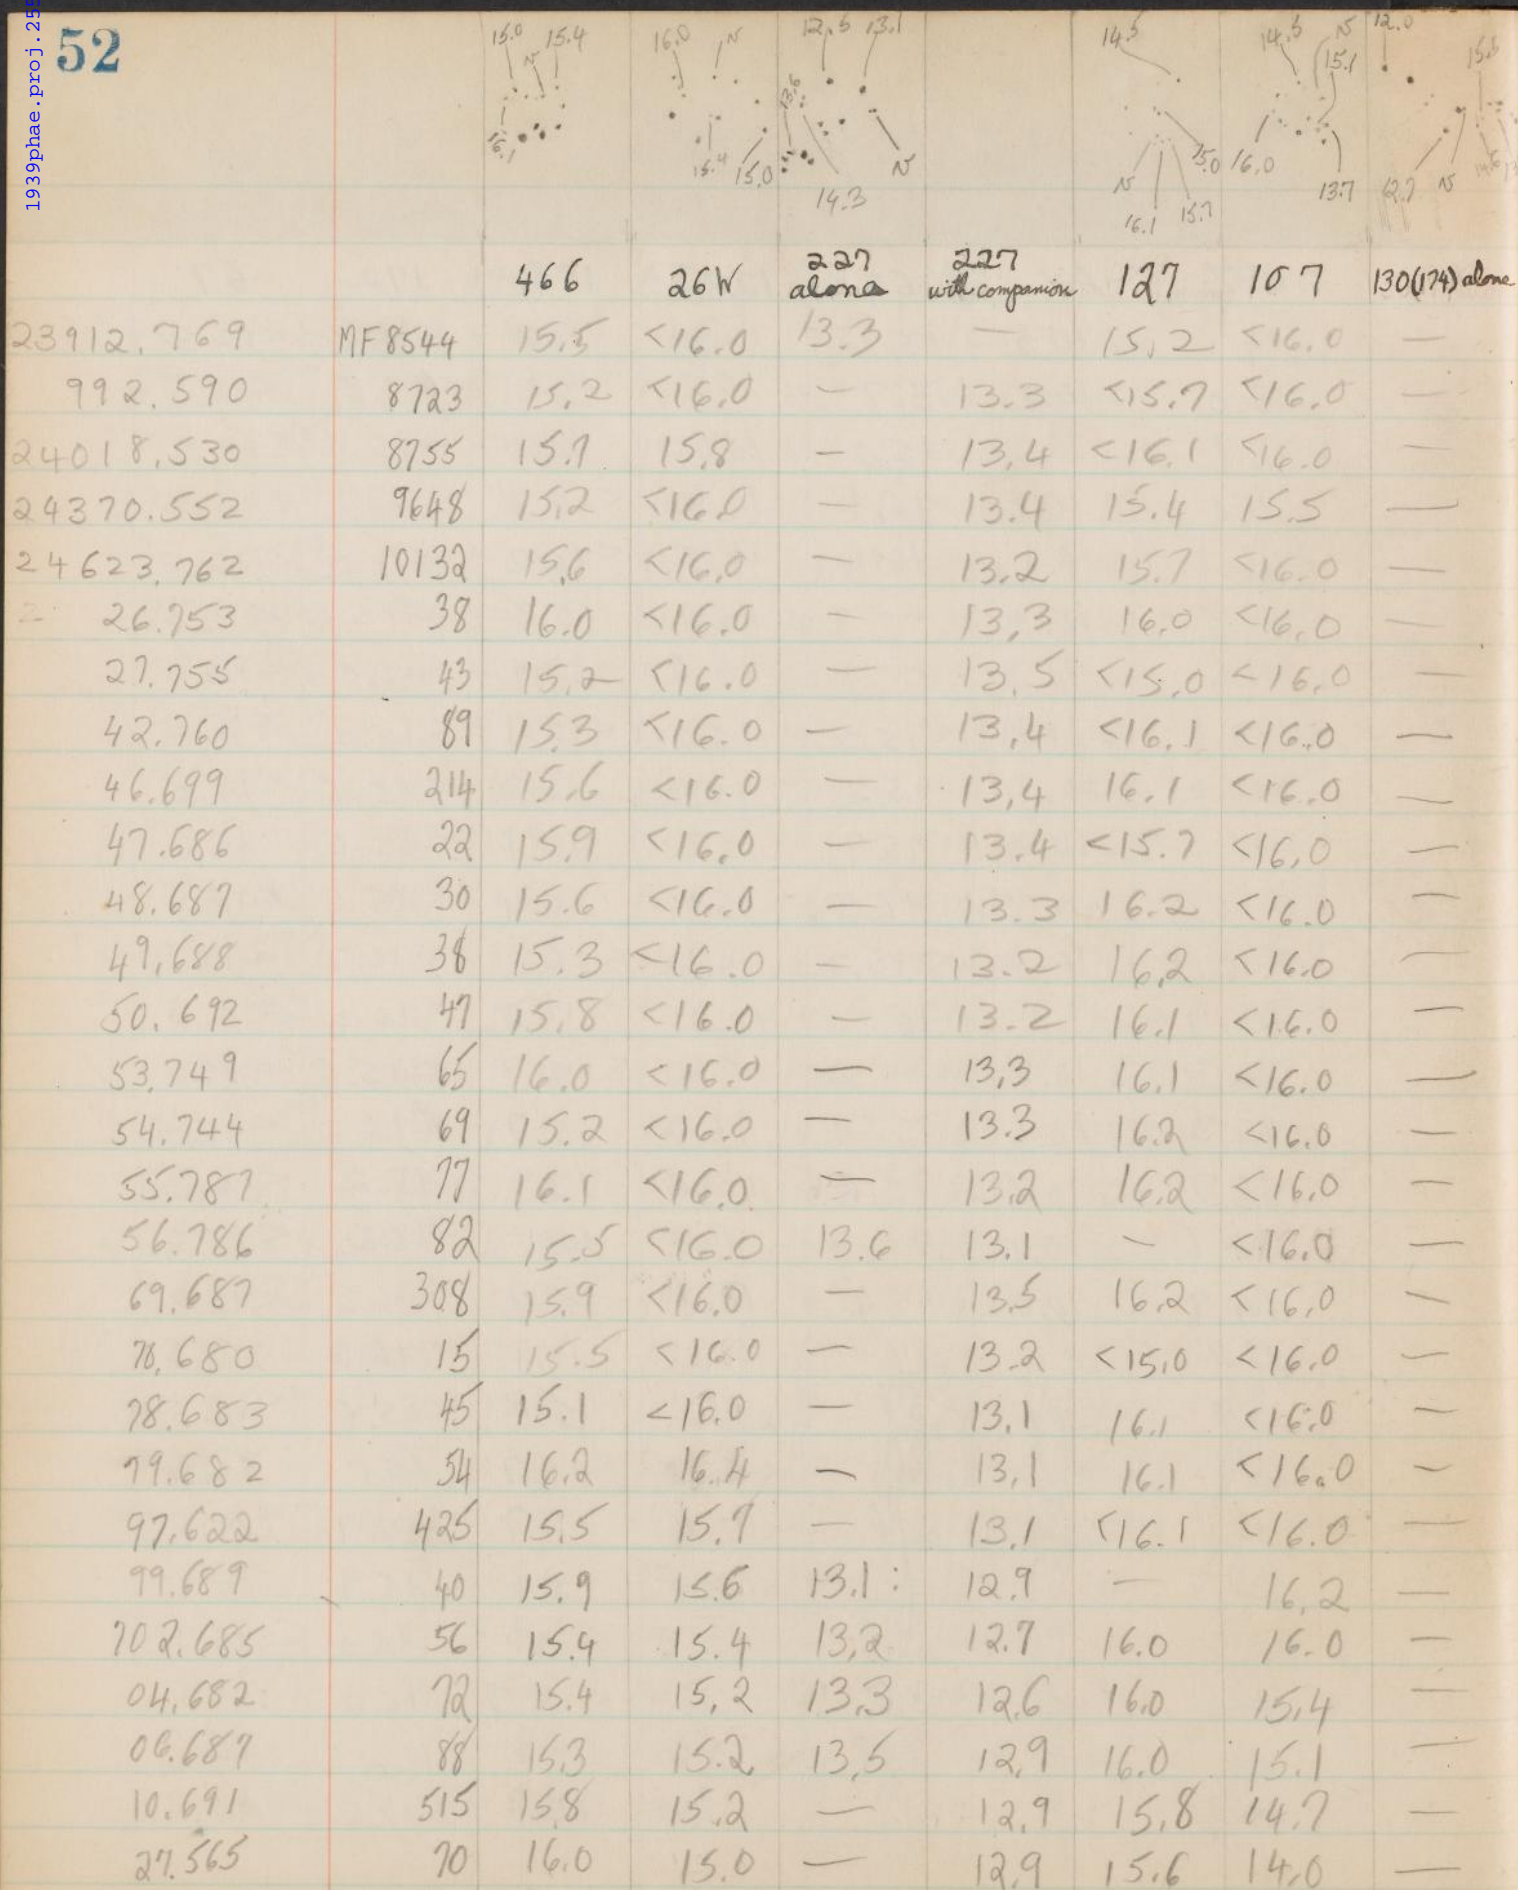 1939phae.proj.25
52
15.0 15.4 16.0 N 12.5 13.1 14.5 14.5 N 12.0
N 15.1 15.5
13.6
16.1 15.4 15.0 N 15.0 16.0
14.3 N 13.7 12.7 N
16.1 15.7
466 26W 227 alone 227 with companion 127 107 130(174) alone
23912.769 MF8544 15.5 <16.0 13.3 — 15.2 <16.0 —
992.590 8723 15.2 <16.0 — 13.3 <15.7 <16.0 —
24018.530 8755 15.7 15.8 — 13.4 <16.1 <16.0 —
24370.552 9648 15.2 <16.0 — 13.4 15.4 15.5 —
24623.762 10132 15.6 <16.0 — 13.2 15.7 <16.0 —
26.753 38 16.0 <16.0 — 13.3 16.0 <16.0 —
27.755 43 15.2 <16.0 — 13.5 <15.0 <16.0 —
42.760 89 15.3 <16.0 — 13.4 <16.1 <16.0 —
46.699 214 15.6 <16.0 — 13.4 16.1 <16.0 —
47.686 22 15.9 <16.0 — 13.4 <15.7 <16.0 —
48.687 30 15.6 <16.0 — 13.3 16.2 <16.0 —
49.688 38 15.3 <16.0 — 13.2 16.2 <16.0 —
50.692 47 15.8 <16.0 — 13.2 16.1 <16.0 —
53.749 65 16.0 <16.0 — 13.3 16.1 <16.0 —
54.744 69 15.2 <16.0 — 13.3 16.2 <16.0 —
55.787 77 16.1 <16.0 — 13.2 16.2 <16.0 —
56.786 82 15.5 <16.0 13.6 13.1 — <16.0 —
69.687 308 15.9 <16.0 — 13.5 16.2 <16.0 —
70.680 15 15.5 <16.0 — 13.2 <15.0 <16.0 —
78.683 45 15.1 <16.0 — 13.1 16.1 <16.0 —
79.682 54 16.2 16.4 — 13.1 16.1 <16.0 —
97.622 425 15.5 15.7 — 13.1 <16.1 <16.0 —
99.689 40 15.9 15.6 13.1: 12.9 — 16.2 —
702.685 56 15.4 15.4 13.2 12.7 16.0 16.0 —
04.682 72 15.4 15.2 13.3 12.6 16.0 15.4 —
06.687 88 15.3 15.2 13.5 12.9 16.0 15.1 —
10.691 515 15.8 15.2 — 12.9 15.8 14.7 —
27.565 70 16.0 15.0 — 12.9 15.6 14.0 —